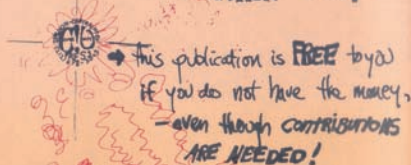 → this publication is FREE to you
if you do not have the money,
- even though CONTRIBUTIONS
ARE NEEDED!